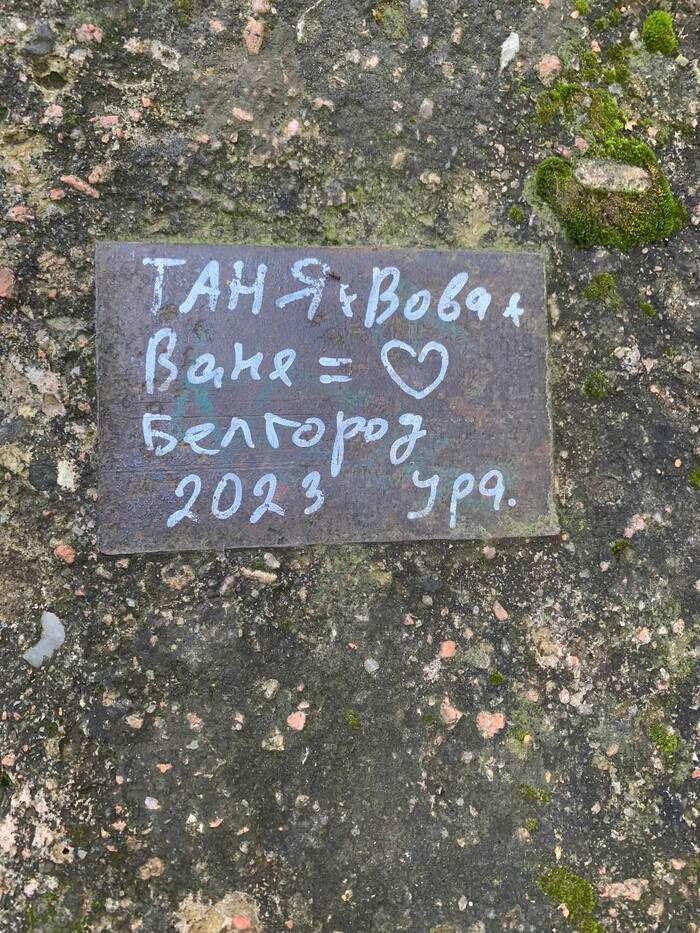 ТАНЯ+Вова+
Ваня=♡
Белгород
2023 ура.